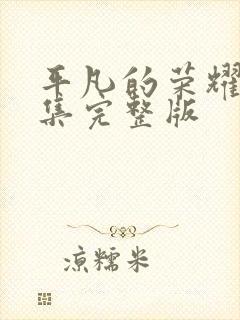 平凡的荣耀
集完整版
凉糯米